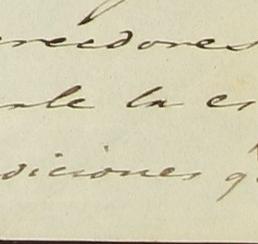 reedores
rle la es
diciones q